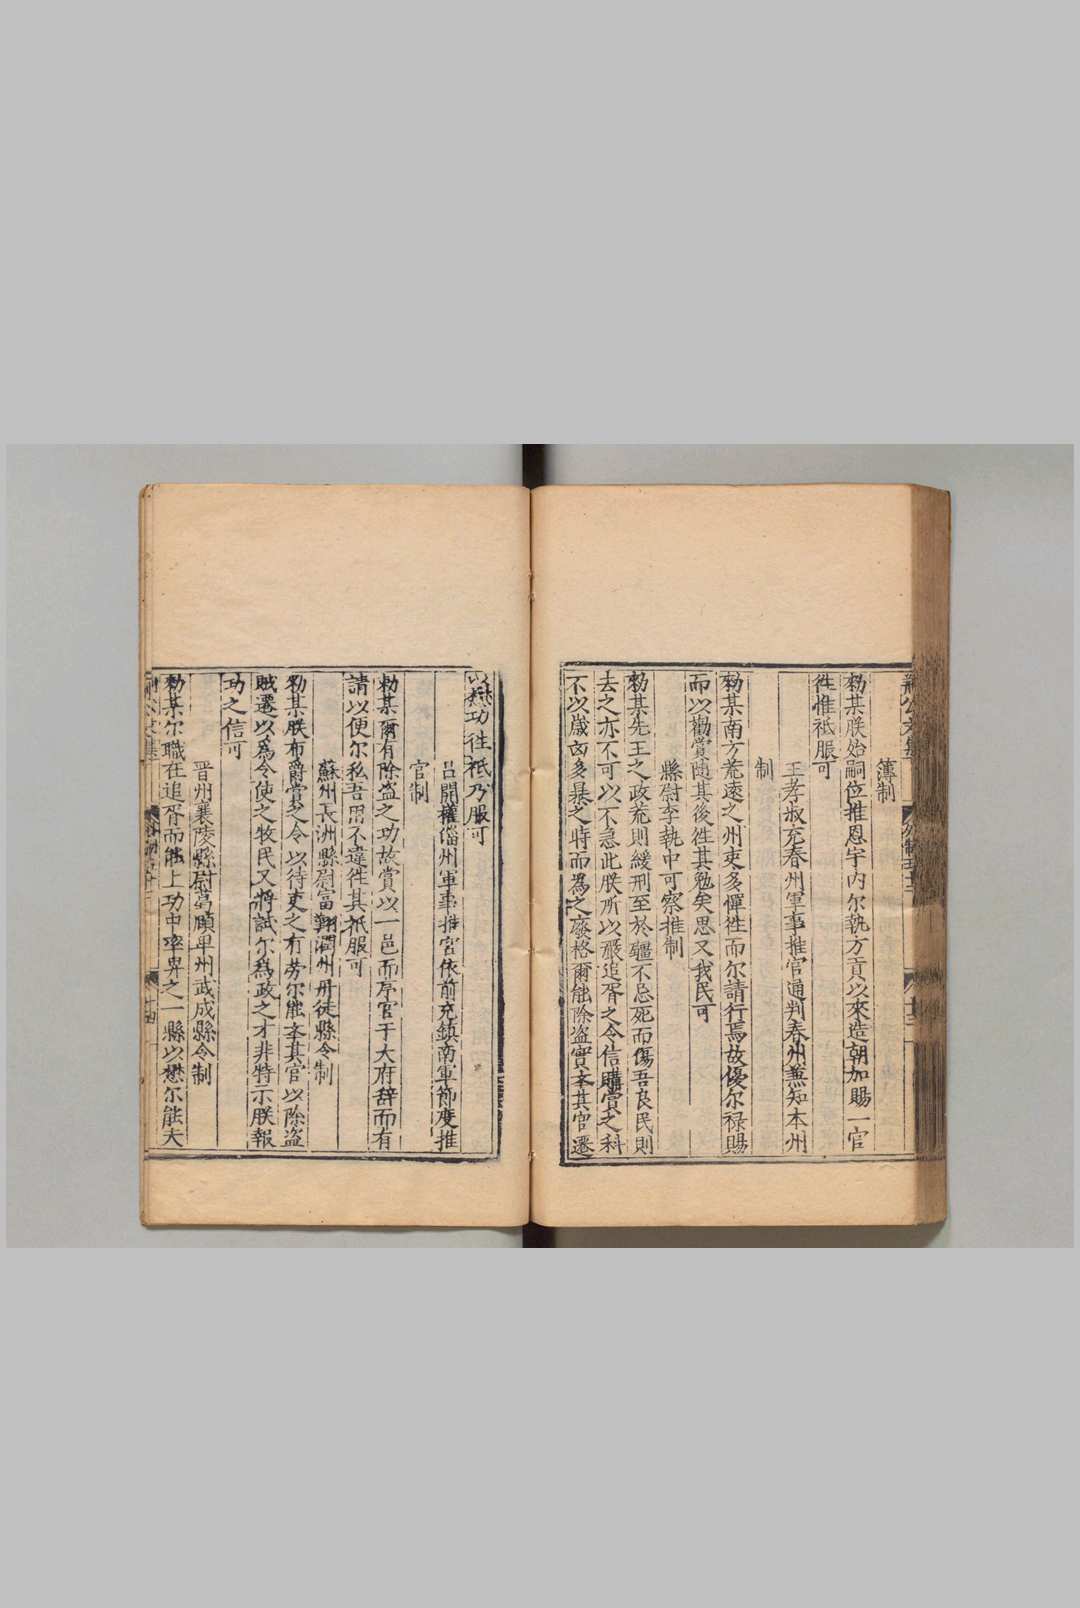 簿制
勑某朕始嗣位推恩宇内尔執方貢以來造朝加賜一官
徃惟祗服可
王孝叔充春州軍事推官通判春州兼知本州
制
勑某南方荒遠之州吏多憚徃而尔請行焉故優尔禄賜
而以勸賞隨其後徃其勉矣思又我民可
縣尉李執中可察推制
勑某先王之政荒則緩刑至於疆不忌死而傷吾良民則
去之亦不可以不急此朕所以嚴追胥之令信購賞之科
不以歲凶多暴之時而爲之廢格爾能除盗實夲其官遷
以懋功徃祗乃服可
吕開權淄州軍事推官依前充鎮南軍節度推
官制
勑某爾有除盗之功故賞以一邑而辱官于大府辞而有
請以便尔私吾用不違徃其祇服可
蘇州長洲縣尉富翔潤州丹徒縣令制
勑某朕布爵賞之令以待吏之有劳尔能夲其官以除盗
賊遷以為令使之牧民又將試尔為政之才非特示朕報
功之信可
晋州襄陵縣尉葛頤單州武成縣令制
勑某尔職在追胥而能上功中率畀之一縣以懋尔能夫